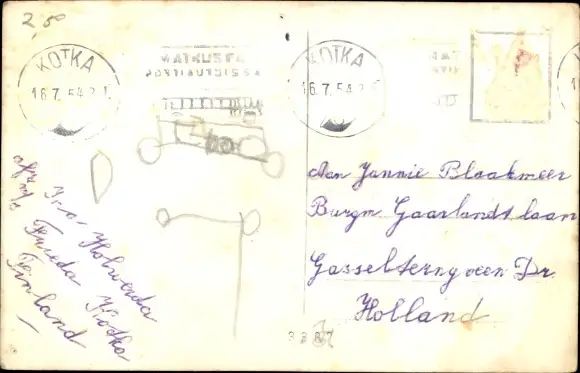 2,50
KOTKA
16.7.54 2 1
MATKUSTA
POSTIAUTOISSA
KOTKA
16.7.54
Aan Jannie Blaakmeer
Burgm. Gaarlandtlaan
Gasselterngveen Dr.
Holland
Holwerda
Frieda Kotka
Finland